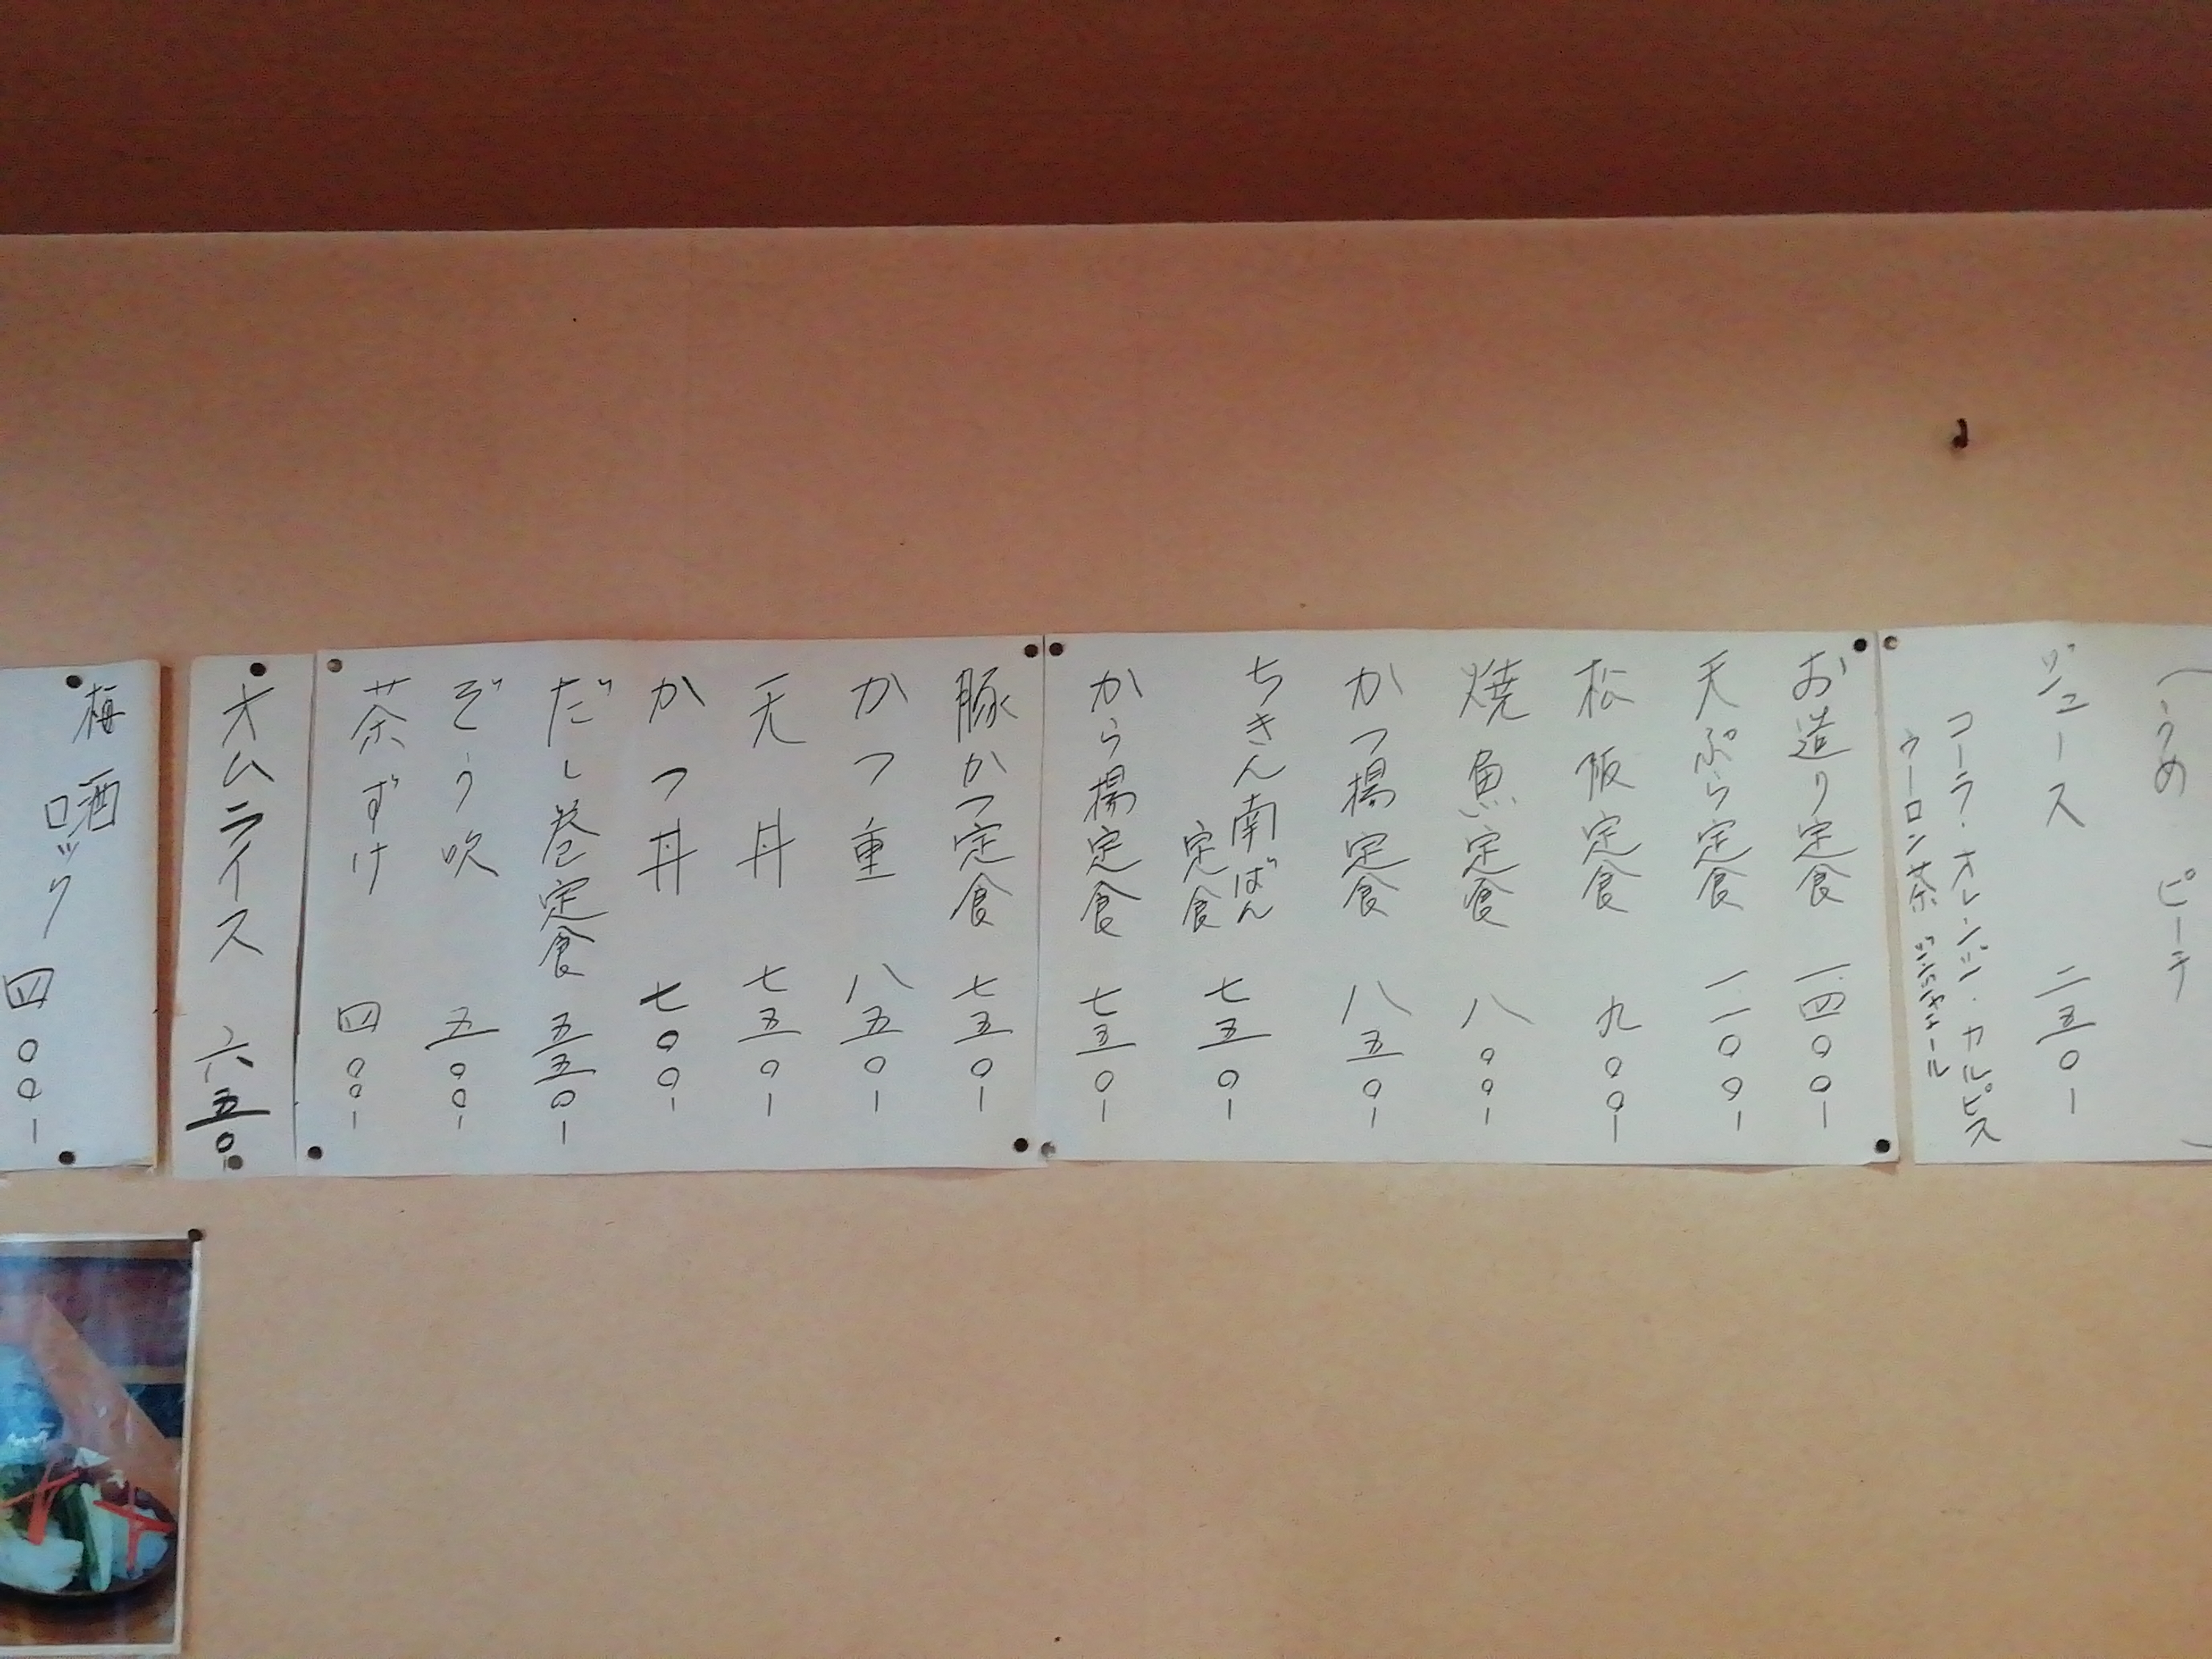 （うめ　ピーチ　）
ジュース　二五〇-
コーラ・オレンジ・カルピス
ウーロン茶　ジンジャエール
お造り定食　一四〇〇-
天ぷら定食　一一〇〇-
松阪定食　九〇〇-
焼魚定食　八〇〇-
かつ揚定食　八五〇-
ちきん南ばん
定食　七五〇-
から揚定食　七五〇-
豚かつ定食　七五〇-
かつ重　八五〇-
天丼　七五〇-
かつ丼　七〇〇-
だし巻定食　五五〇-
ぞう吹　五〇〇-
茶ずけ　四〇〇-
オムライス　六五〇-
梅酒
ロック　四〇〇-